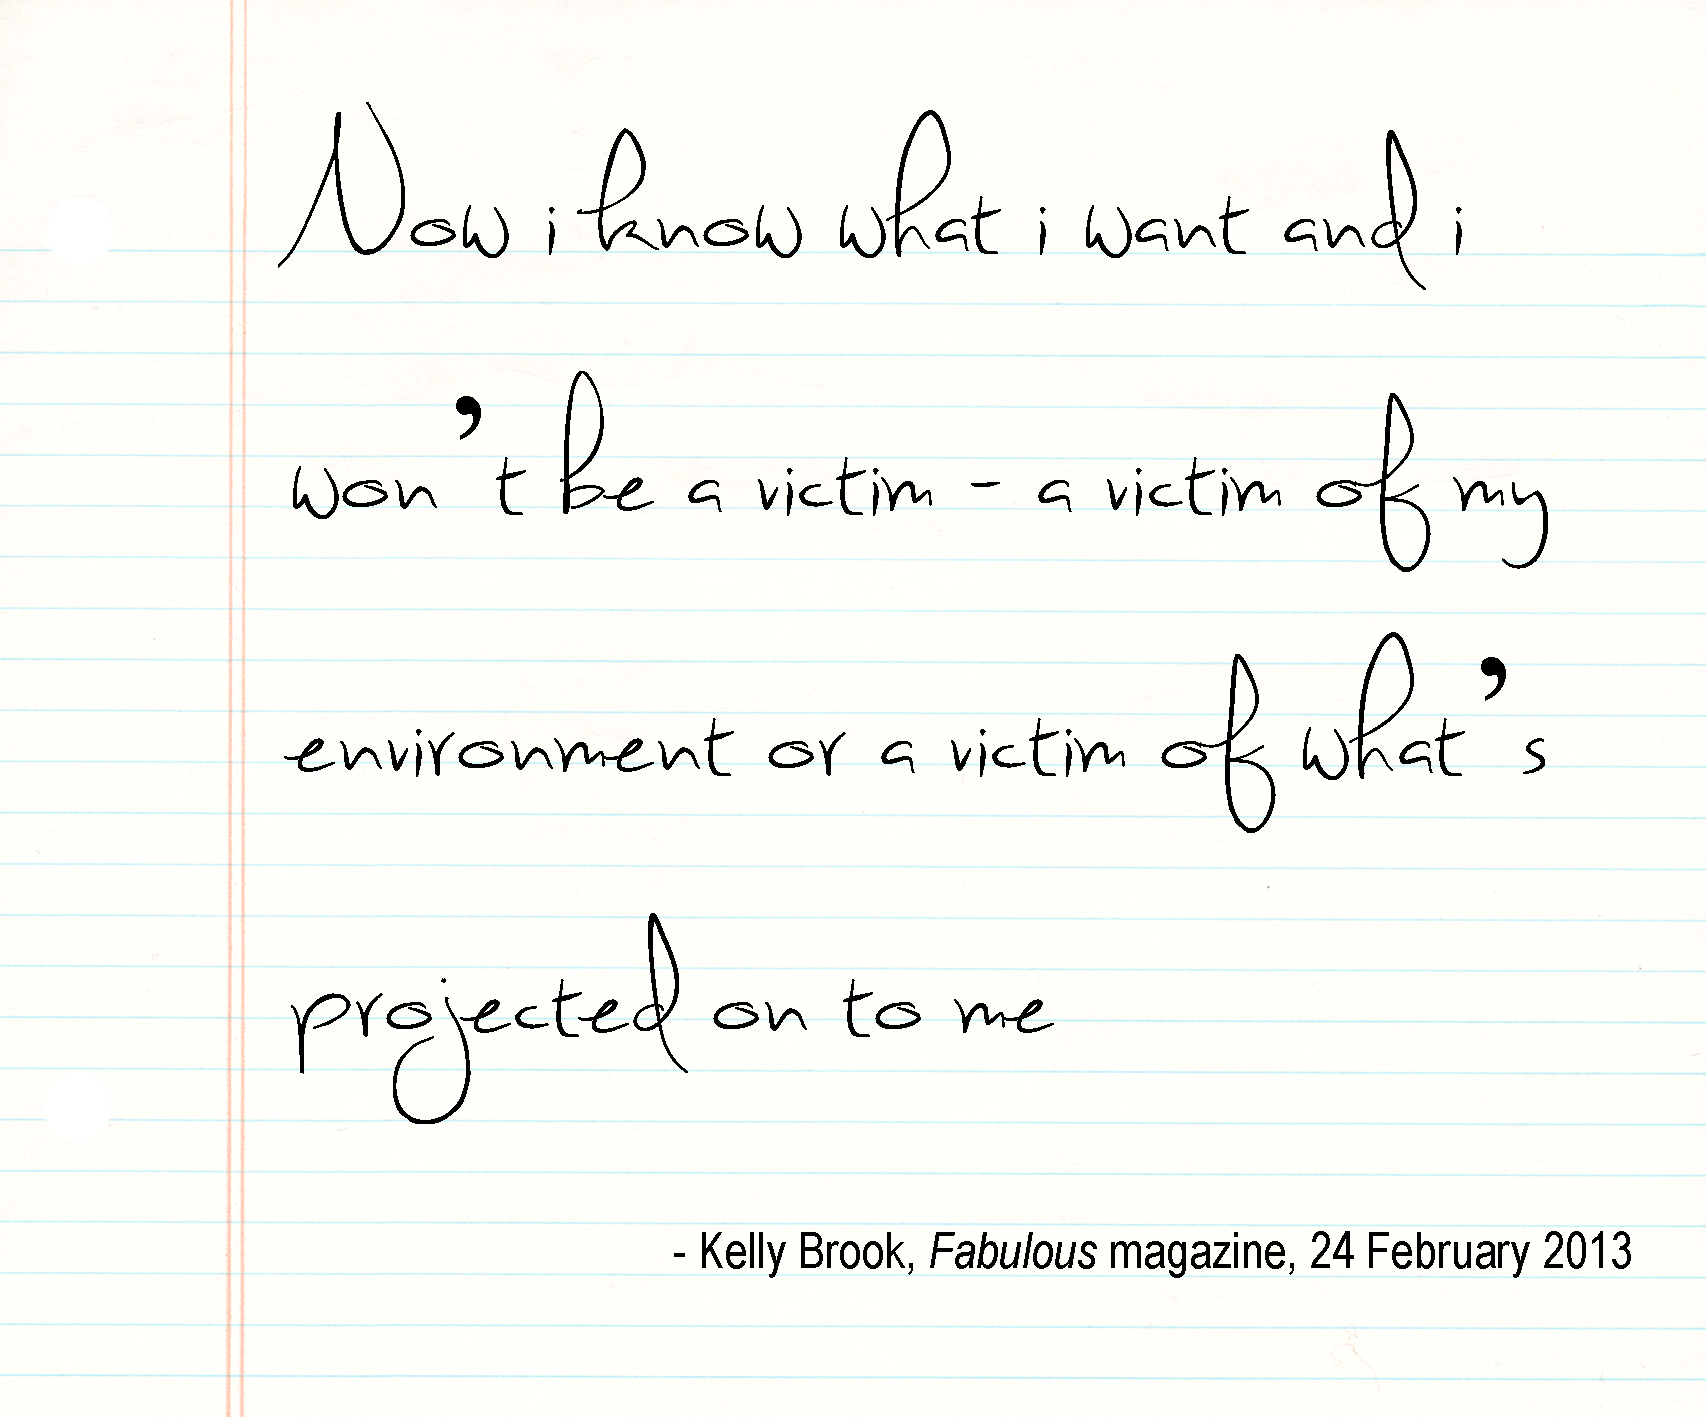 Now i know what i want and i
won't be a victim - a victim of my
environment or a victim of what's
projected on to me
- Kelly Brook, Fabulous magazine, 24 February 2013